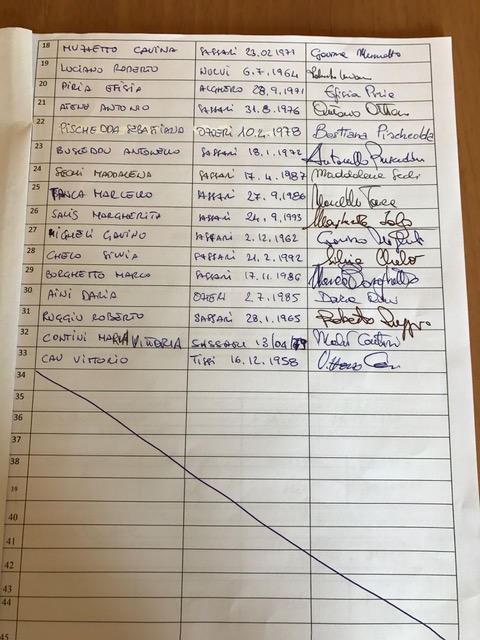 18 MUZZETTO GAVINA SASSARI 23.02.1971
19 LUCIANO ROBERTO NULVI 6.7.1964
20 PIRIA EFISIA ALGHERO 28.9.1971 Efisia Piria
21 ANTONIO SASSARI 31.8.1976
22 PISCHEDDA SEBASTIANA OZIERI 10.2.1978 Bastiana Pischedda
23 BUSEDDU ANTONELLO SASSARI 18.1.1972 Antonello
24 SECHI MADDALENA SASSARI 17.4.1987 Maddalena Sechi
25 TANCA MARCELLO SASSARI 27.9.1986 Marcello Tanca
26 SALIS MARGHERITA SASSARI 24.9.1993 Margherita Salis
27 MIGHELI GAVINO SASSARI 2.12.1962 Gavino Migheli
28 CHELO SILVIA SASSARI 21.2.1992 Silvia Chelo
29 BORGHETTO MARCO SASSARI 17.11.1986 Marco Borghetto
30 AINI DARIA OZIERI 2.7.1985
31 RUGGIU ROBERTO SASSARI 28.1.1965 Roberto Ruggiu
32 CONTINI MARIA VITTORIA SASSARI 13/04/79
33 CAU VITTORIO TISSI 16.12.1958 Vittorio Cau
34
35
36
37
38
39
40
41
42
43
44
45